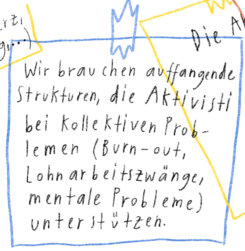 Die
Wir brauchen auffangende
Strukturen, die Aktivisti
bei kollektiven Prob-
lemen (Burn-out,
Lohnarbeitszwänge,
mentale Probleme)
unterstützen.